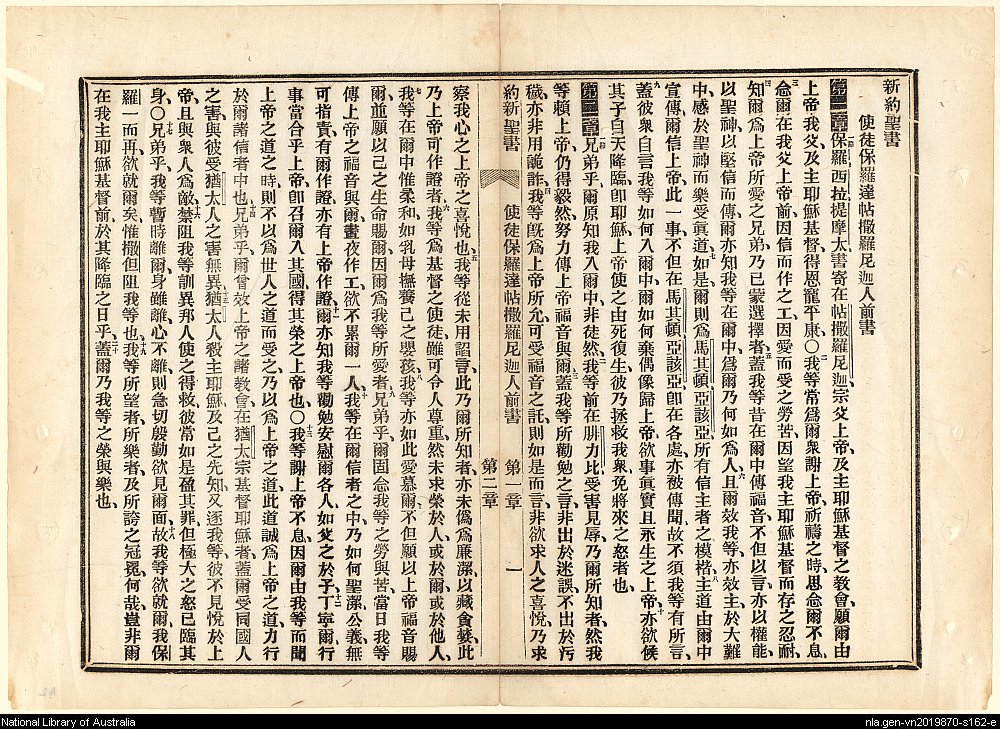 新約聖書
使徒保羅達帖撒羅尼迦人前書
第一章保羅西拉提摩太書寄在帖撒羅尼迦宗父上帝及主耶穌基督之教會願爾由
上帝我父及主耶穌基督得恩寵平康〇我等常爲爾衆謝上帝祈禱之時思念爾不息、
念爾在我父上帝前因信而作之工因愛而受之勞苦因望我主耶穌基督而存之忍耐、
知爾爲上帝所愛之兄弟乃已蒙選擇者蓋我等昔在爾中傳福音、不但以言、亦以權能、
以聖神、以堅信而傳爾亦知我等在爾中爲爾乃何如爲人且爾效我等、亦效主、於大難
中感於聖神而樂受眞道、如是爾則爲馬其頓、亞該亞所有信主者之模楷、主道由爾中
宣傳爾信上帝、此一事、不但在馬其頓、亞該亞、即在各處、亦被傳聞、故不須我等有所言、
蓋彼衆自言我等如何入爾中、爾如何棄偶像歸上帝、欲事眞實且永生之上帝、亦欲候
其子自天降臨、即耶穌、上帝使之由死復生、彼乃拯救我衆、免將來之怒者也、
第二章兄弟乎、爾原知我入爾中非徒然、我等前在腓力比受害見辱、乃爾所知者、然我
等賴上帝、仍得毅然努力、傳上帝福音與爾、蓋我等所勸勉之言、非出於迷誤、不出於汚
穢、亦非用詭詐、我等既爲上帝所允、可受福音之託、則如是而言、非欲求人之喜悅、乃求
約新聖書 使徒保羅達帖撒羅尼迦人前書 第一章 一
第二章
察我心之上帝之喜悅也、我等從未用諂言、此乃爾所知者、亦未僞爲廉潔、以藏貪婪、此
乃上帝可作證者、我等爲基督之使徒、雖可令人尊重、然未求榮於人、或於爾、或於他人、
我等在爾中惟柔和、如乳母撫養己之嬰孩、我等亦如此愛慕爾、不但願以上帝福音賜
爾、並願以己之生命賜爾、因爾爲我等所愛者、兄弟乎、爾固念我等之勞與苦、當日我等
傳上帝之福音與爾、晝夜作工、欲不累爾一人、我等在爾信者之中、乃如何聖潔公義無
可指責、有爾作證、亦有上帝作證、爾亦知我等勸勉安慰爾各人、如父之於子、丁寧爾行
事、當合乎上帝、即召爾入其國得其榮之上帝也〇我等謝上帝不息、因爾由我等而聞
上帝之道之時、則不以爲世人之道而受之、乃以爲上帝之道、此道誠爲上帝之道、力行
於爾諸信者中也、兄弟乎、爾曾效上帝之諸教會、在猶太宗基督耶穌者、蓋爾受同國人
之害、與彼受猶太人之害無異、猶太人殺主耶穌、及己之先知、又逐我等、彼不見悅於上
帝、且與衆人爲敵、禁阻我等訓異邦人、使之得救、彼當如是盈其罪、但極大之怒已臨其
身〇兄弟乎、我等暫時離爾、身雖離、心不離、則急切殷勤欲見爾面、故我等欲就爾、我保
羅一而再欲就爾矣、惟撒但阻我等也、我等所望者、所樂者、及所誇之冠冕何哉、豈非爾
在我主耶穌基督前、於其降臨之日乎、蓋爾乃我等之榮與樂也、
National Library of Australia
nla.gen-vn2019870-s162-e